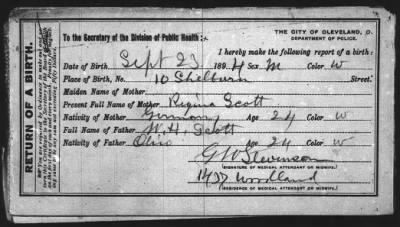 THE CITY OF CLEVELAND, O.
DEPARTMENT OF POLICE.
To the Secretary of the Division of Public Health:
I hereby make the following report of a birth:
Date of Birth Sept 23 1894 Sex M Color W
Place of Birth, No. 10 Shelburn Street.
Maiden Name of Mother
Present Full Name of Mother Regina Scott
Nativity of Mother Germany Age 24 Color W
Full Name of Father W. H. Scott
Nativity of Father Ohio Age 24 Color W
G W Stevenson
(SIGNATURE OF MEDICAL ATTENDANT OR MIDWIFE.)
1437 Woodland
(RESIDENCE OF MEDICAL ATTENDANT OR MIDWIFE.)
RETURN OF A BIRTH.